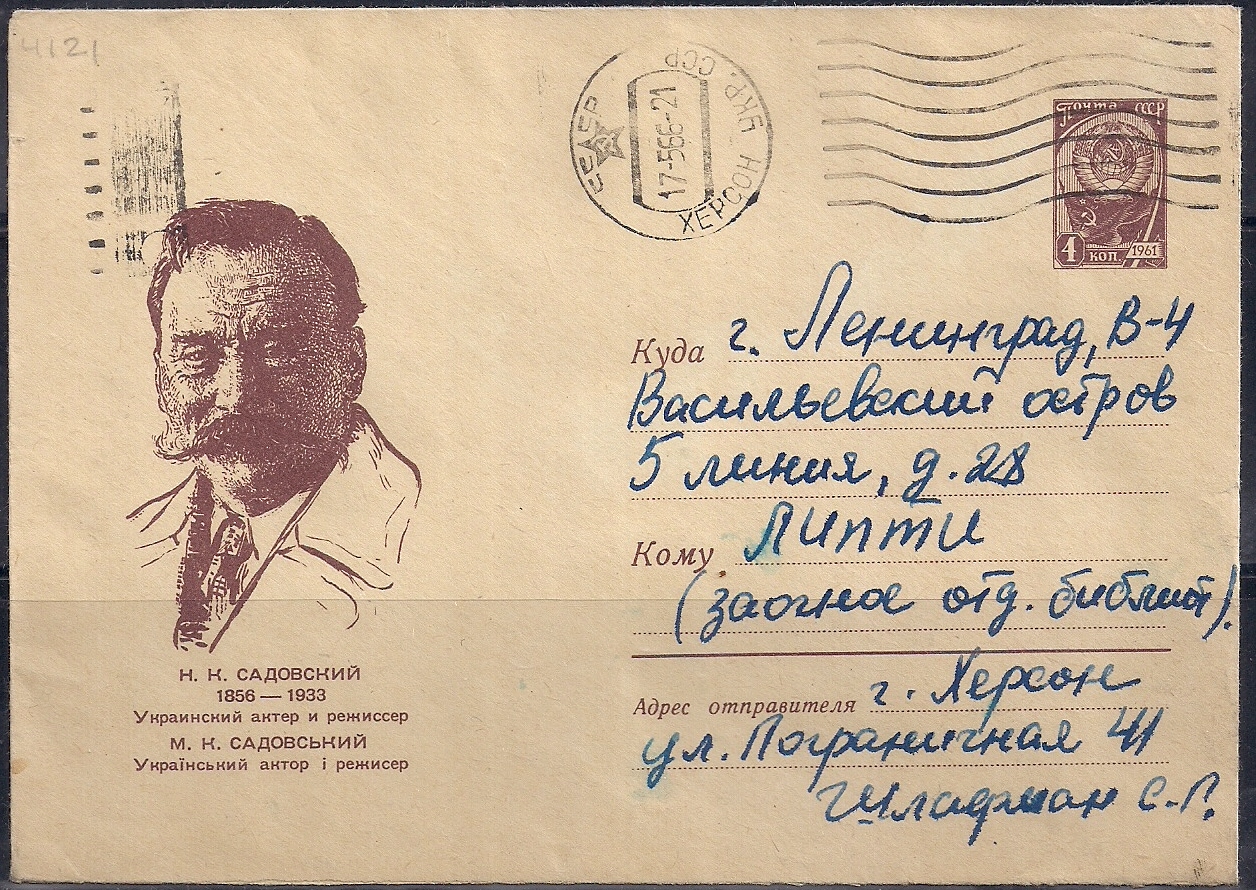 4121
СССР
17-566-21
ХЕРСОН УКР. ССР
Почта СССР
4 коп 1961
Куда г. Ленинград, В-4
Васильевский остров
5 линия, д. 28
Кому ЛИПТИ
(заочное отд. библиот).
Адрес отправителя г. Херсон
ул. Пограничная 41
С.Г.
Н. К. САДОВСКИЙ
1856 — 1933
Украинский актер и режиссер
М. К. САДОВСЬКИЙ
Український актор і режисер